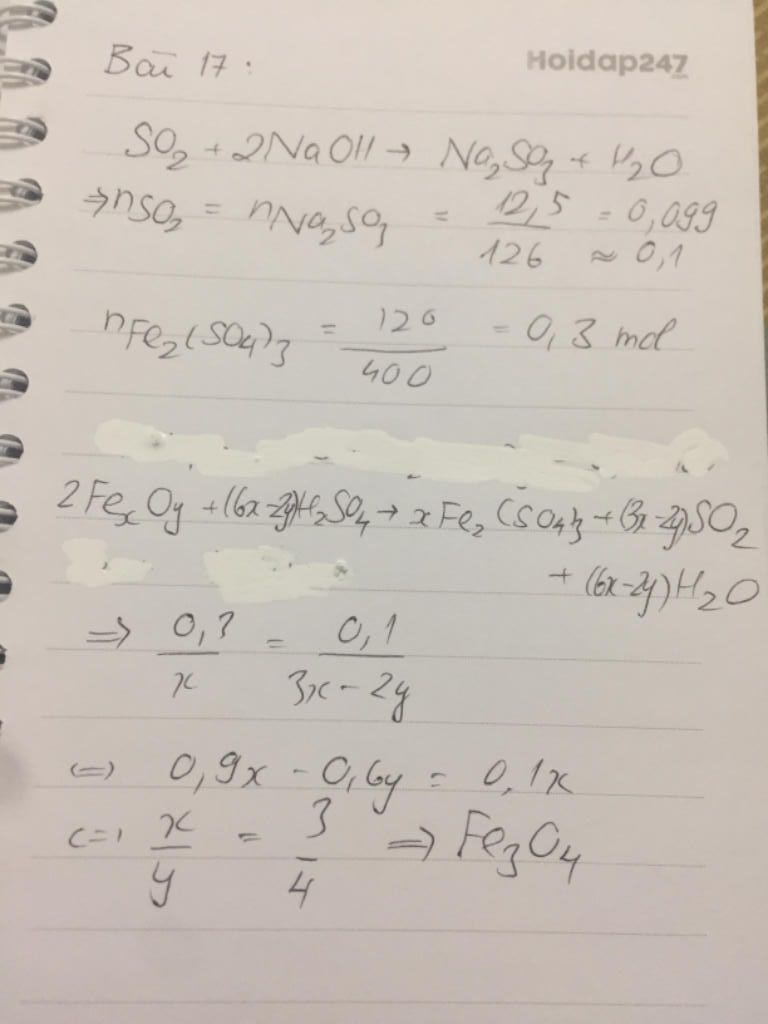 Bài 17:
Hoidap247
.com
SO2 + 2NaOH → Na2SO3 + H2O
⇒ nSO2 = nNa2SO3 = 12,5/126 = 0,099
≈ 0,1
nFe2(SO4)3 = 120/400 = 0,3 mol
2FexOy + (6x-2y)H2SO4 → xFe2(SO4)3 + (3x-2y)SO2
+ (6x-2y)H2O
⇒ 0,3/x = 0,1/3x-2y
⇔ 0,9x - 0,6y = 0,1x
⇔ x/y = 3/4 ⇒ Fe3O4